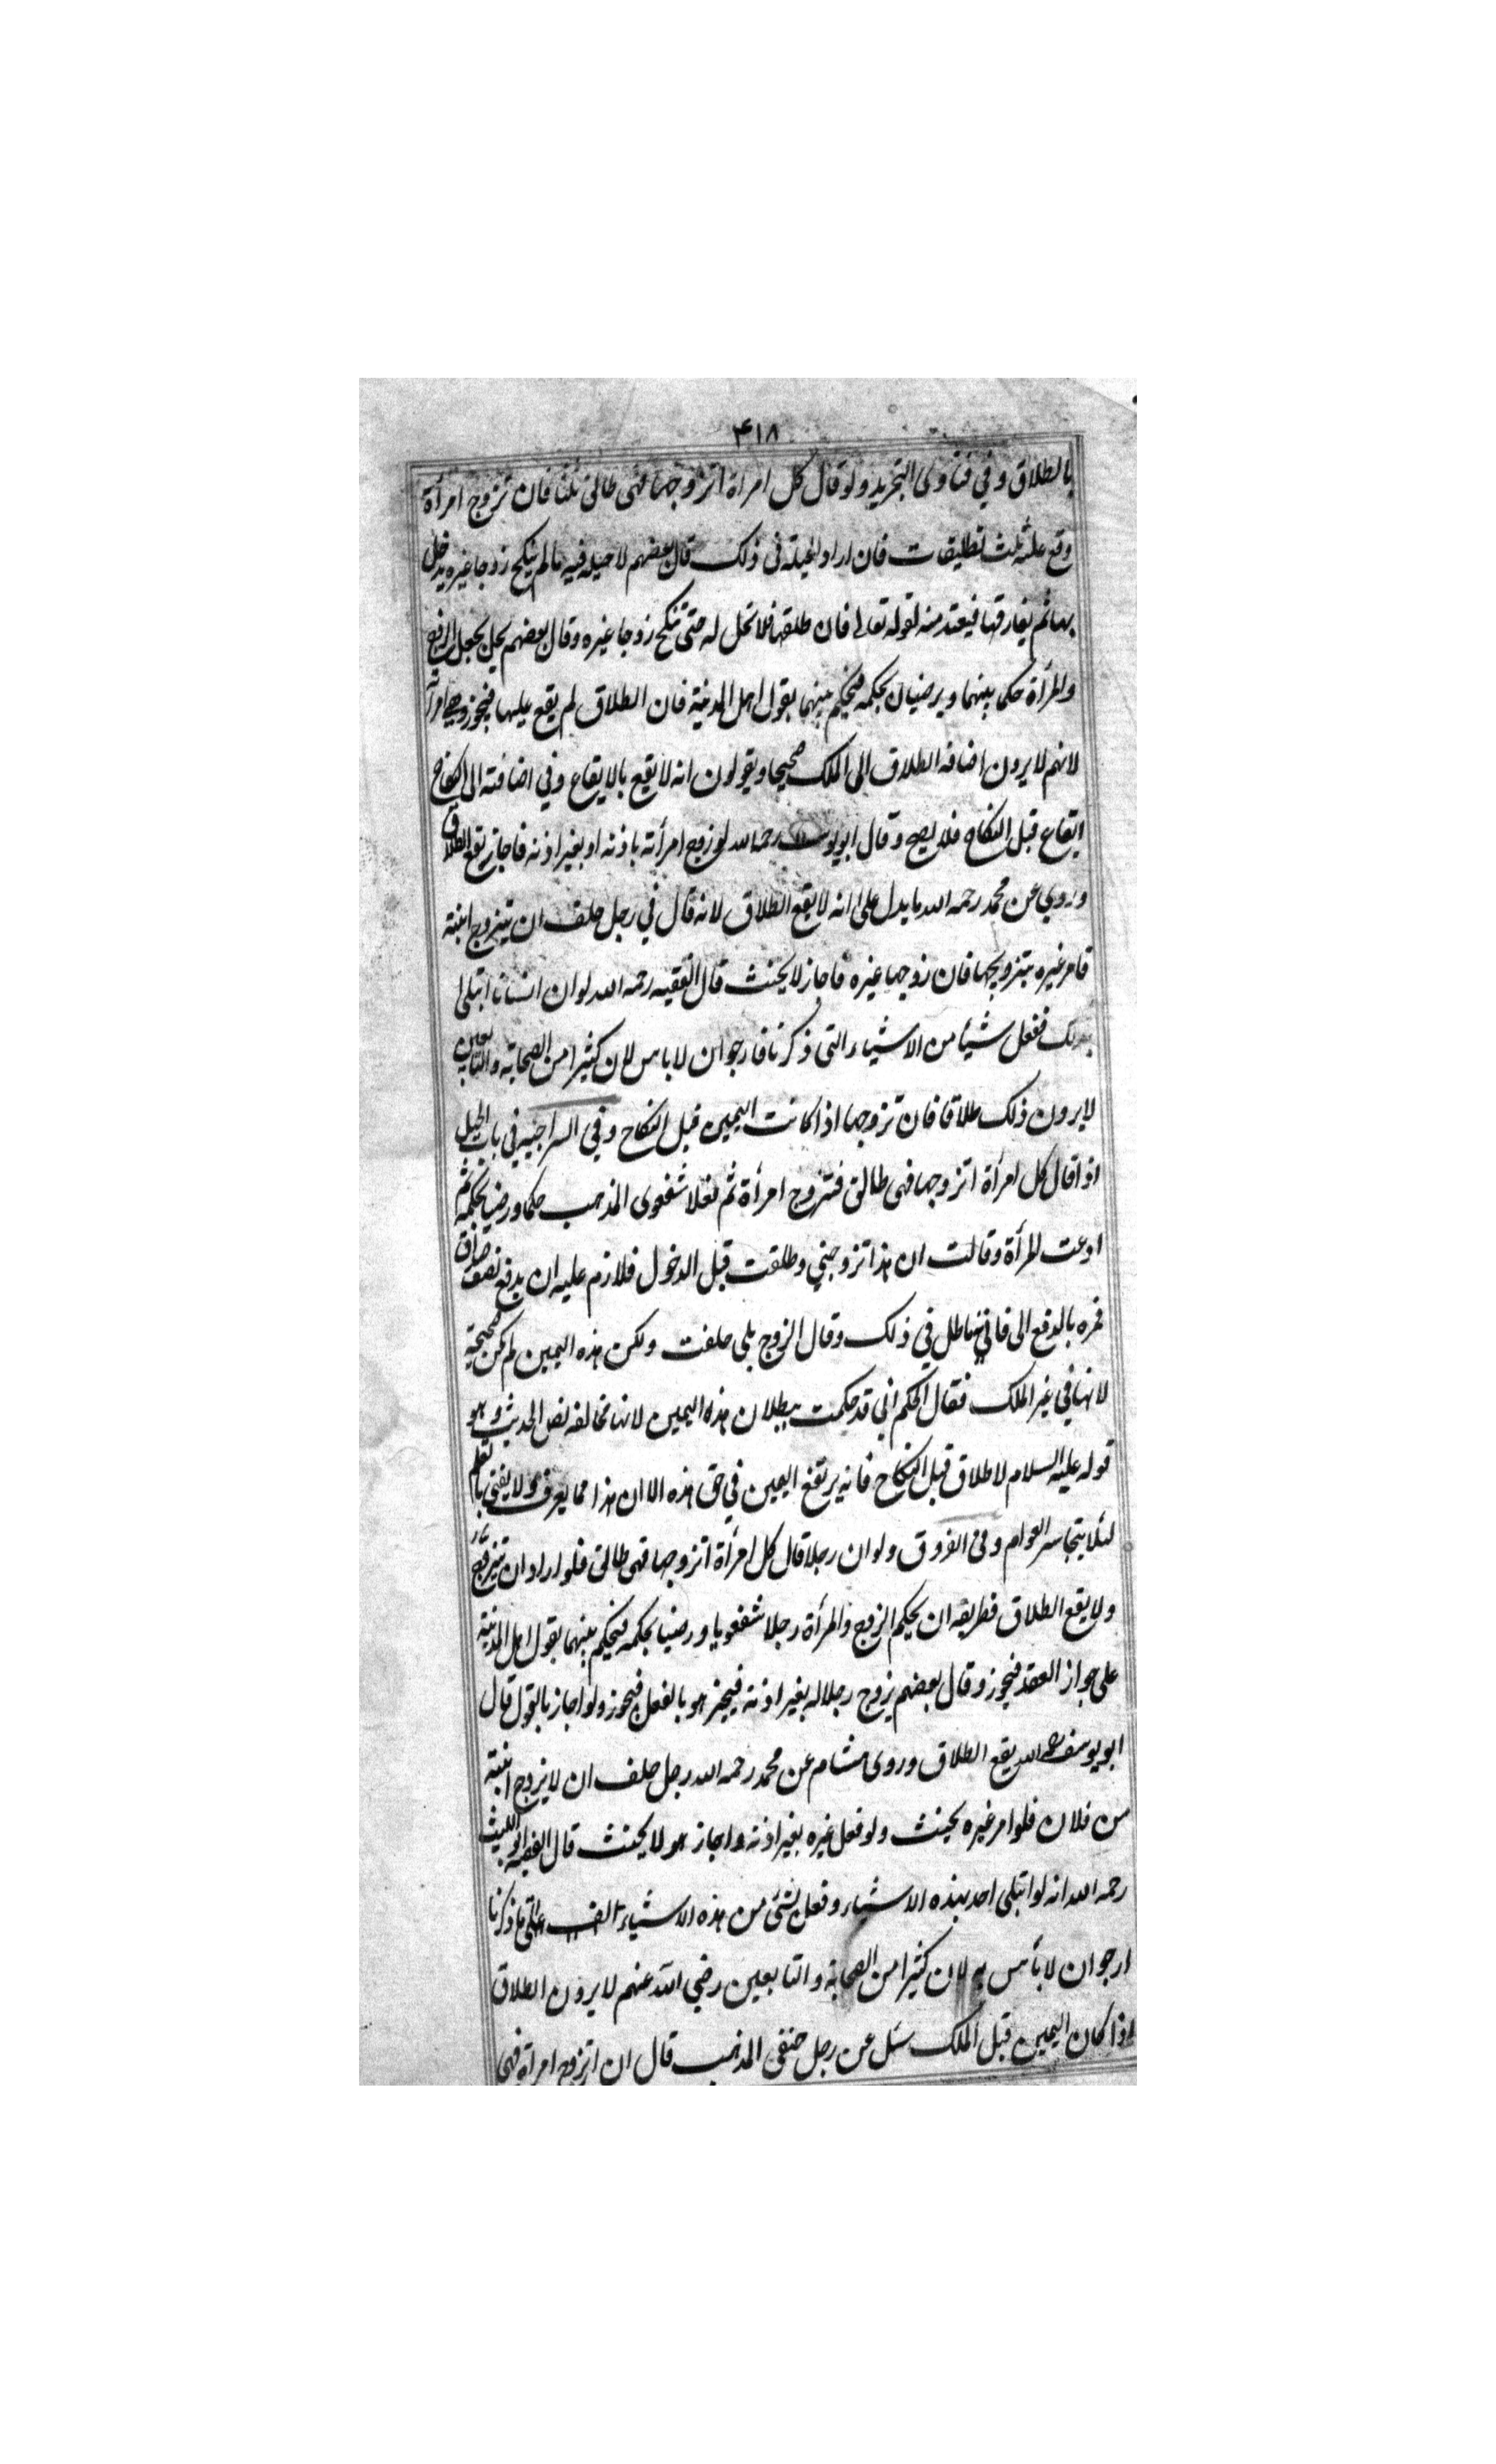 ۴۱۸
بالطلاق وفي فتاوى التجريد ولو قال كل امراة اتزوجها فهى طالق ثلثا فان تزوج امرأة
وقع عليه ثلث تطليقات فان اراد الحيلة فى ذلك قال بعضهم لا حيله فيه ما لم ينكح زوجا غيره يدخل
بها ثم يفارقها فيعتد منه لقوله تعالى فان طلقها فلا تحل له حتى تنكح زوجا غيره وقال بعضهم يحل يجعل الزوج
والمرأة حكما بينهما ويرضيان بحكمه فيحكم بينهما بقول اهل المدينة فان الطلاق لم يقع عليها فيجوز وهي امرأته
لانهم لا يرون اضافه الطلاق الى الملك صحيحا ويقولون انه لا يقع بالايقاع وفي اضافته الى النكاح
ايقاع قبل النكاح فلا يصح وقال ابو يوسف رحمه الله لو زوج امرأته باذنه او بغير اذنه فاجاز يقع الطلاق
وروي عن محمد رحمه الله ما يدل على انه لا يقع الطلاق لانه قال في رجل حلف ان يتزوج ابنته
فامر غيره بتزويجها فان زوجها غيره فاجاز لا يحنث قال الفقيه رحمه الله لو ان انسانا ابتلى
بذلك ففعل شيأ من الاشياء التى ذكرنا فارجو ان لا باس لان كثيرا من الصحابة والتابعين
لا يرون ذلك طلاقا فان تزوجها اذا كانت اليمين قبل النكاح وفي السراجيه في باب الحيل
اذا قال كل امرأة اتزوجها فهى طالق فتزوج امرأة ثم شفعوى المذهب حكما ورضيا بحكمه ثم
ادعت المرأة وقالت ان هذا تزوجني وطلقت قبل الدخول فلازم عليه ان يدفع نصف صداق
فمره بالدفع الى في ذلك وقال الزوج بلى حلفت ولكن هذه اليمين لم تكن صحيحة
لانها في غير الملك فقال الحكم انى قد حكمت ببطلان هذه اليمين لانها مخالفه نص الحديث وهو
قوله عليه السلام لا طلاق قبل النكاح فانه يرتفع اليمين في حق هذه الا ان هذا مما يعرف ولا يفتى به
لئلا يتجاسر العوام وفى الفروق ولو ان رجلا قال كل امرأة اتزوجها فهى طالق فلو اراد ان يتزوج
ولا يقع الطلاق فطريقه ان يحكم الزوج والمرأة رجلا شفعويا ورضيا بحكمه فيحكم بينهما بقول اهل المدينة
على جواز العقد فيجوز وقال بعضهم يزوج رجلا له بغير اذنه فيجيز هو بالفعل فيجوز ولو اجاز بالقول قال
ابو يوسف رحمه الله يقع الطلاق وروى هشام عن محمد رحمه الله رجل حلف ان لا يزوج ابنته
من فلان فلو امر غيره يحنث ولو فعل غيره بغير اذنه واجاز هو لا يحنث قال الفقيه ابو الليث
رحمه الله انه لو ابتلى احد بهذه الاشياء وفعل بشئ من هذه الاشياء التى ذكرنا
ارجو ان لا بأس به لان كثيرا من الصحابة والتابعين رضي الله عنهم لا يرون الطلاق
اذا كان اليمين قبل الملك سئل عن رجل حنفى المذهب قال ان اتزوج امرأة فهى